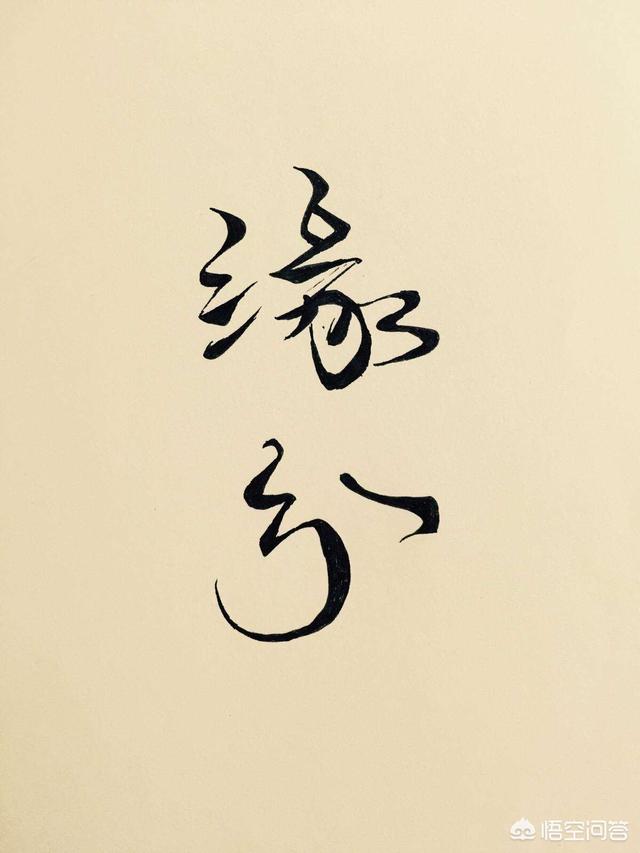 缘
分
悟空问答